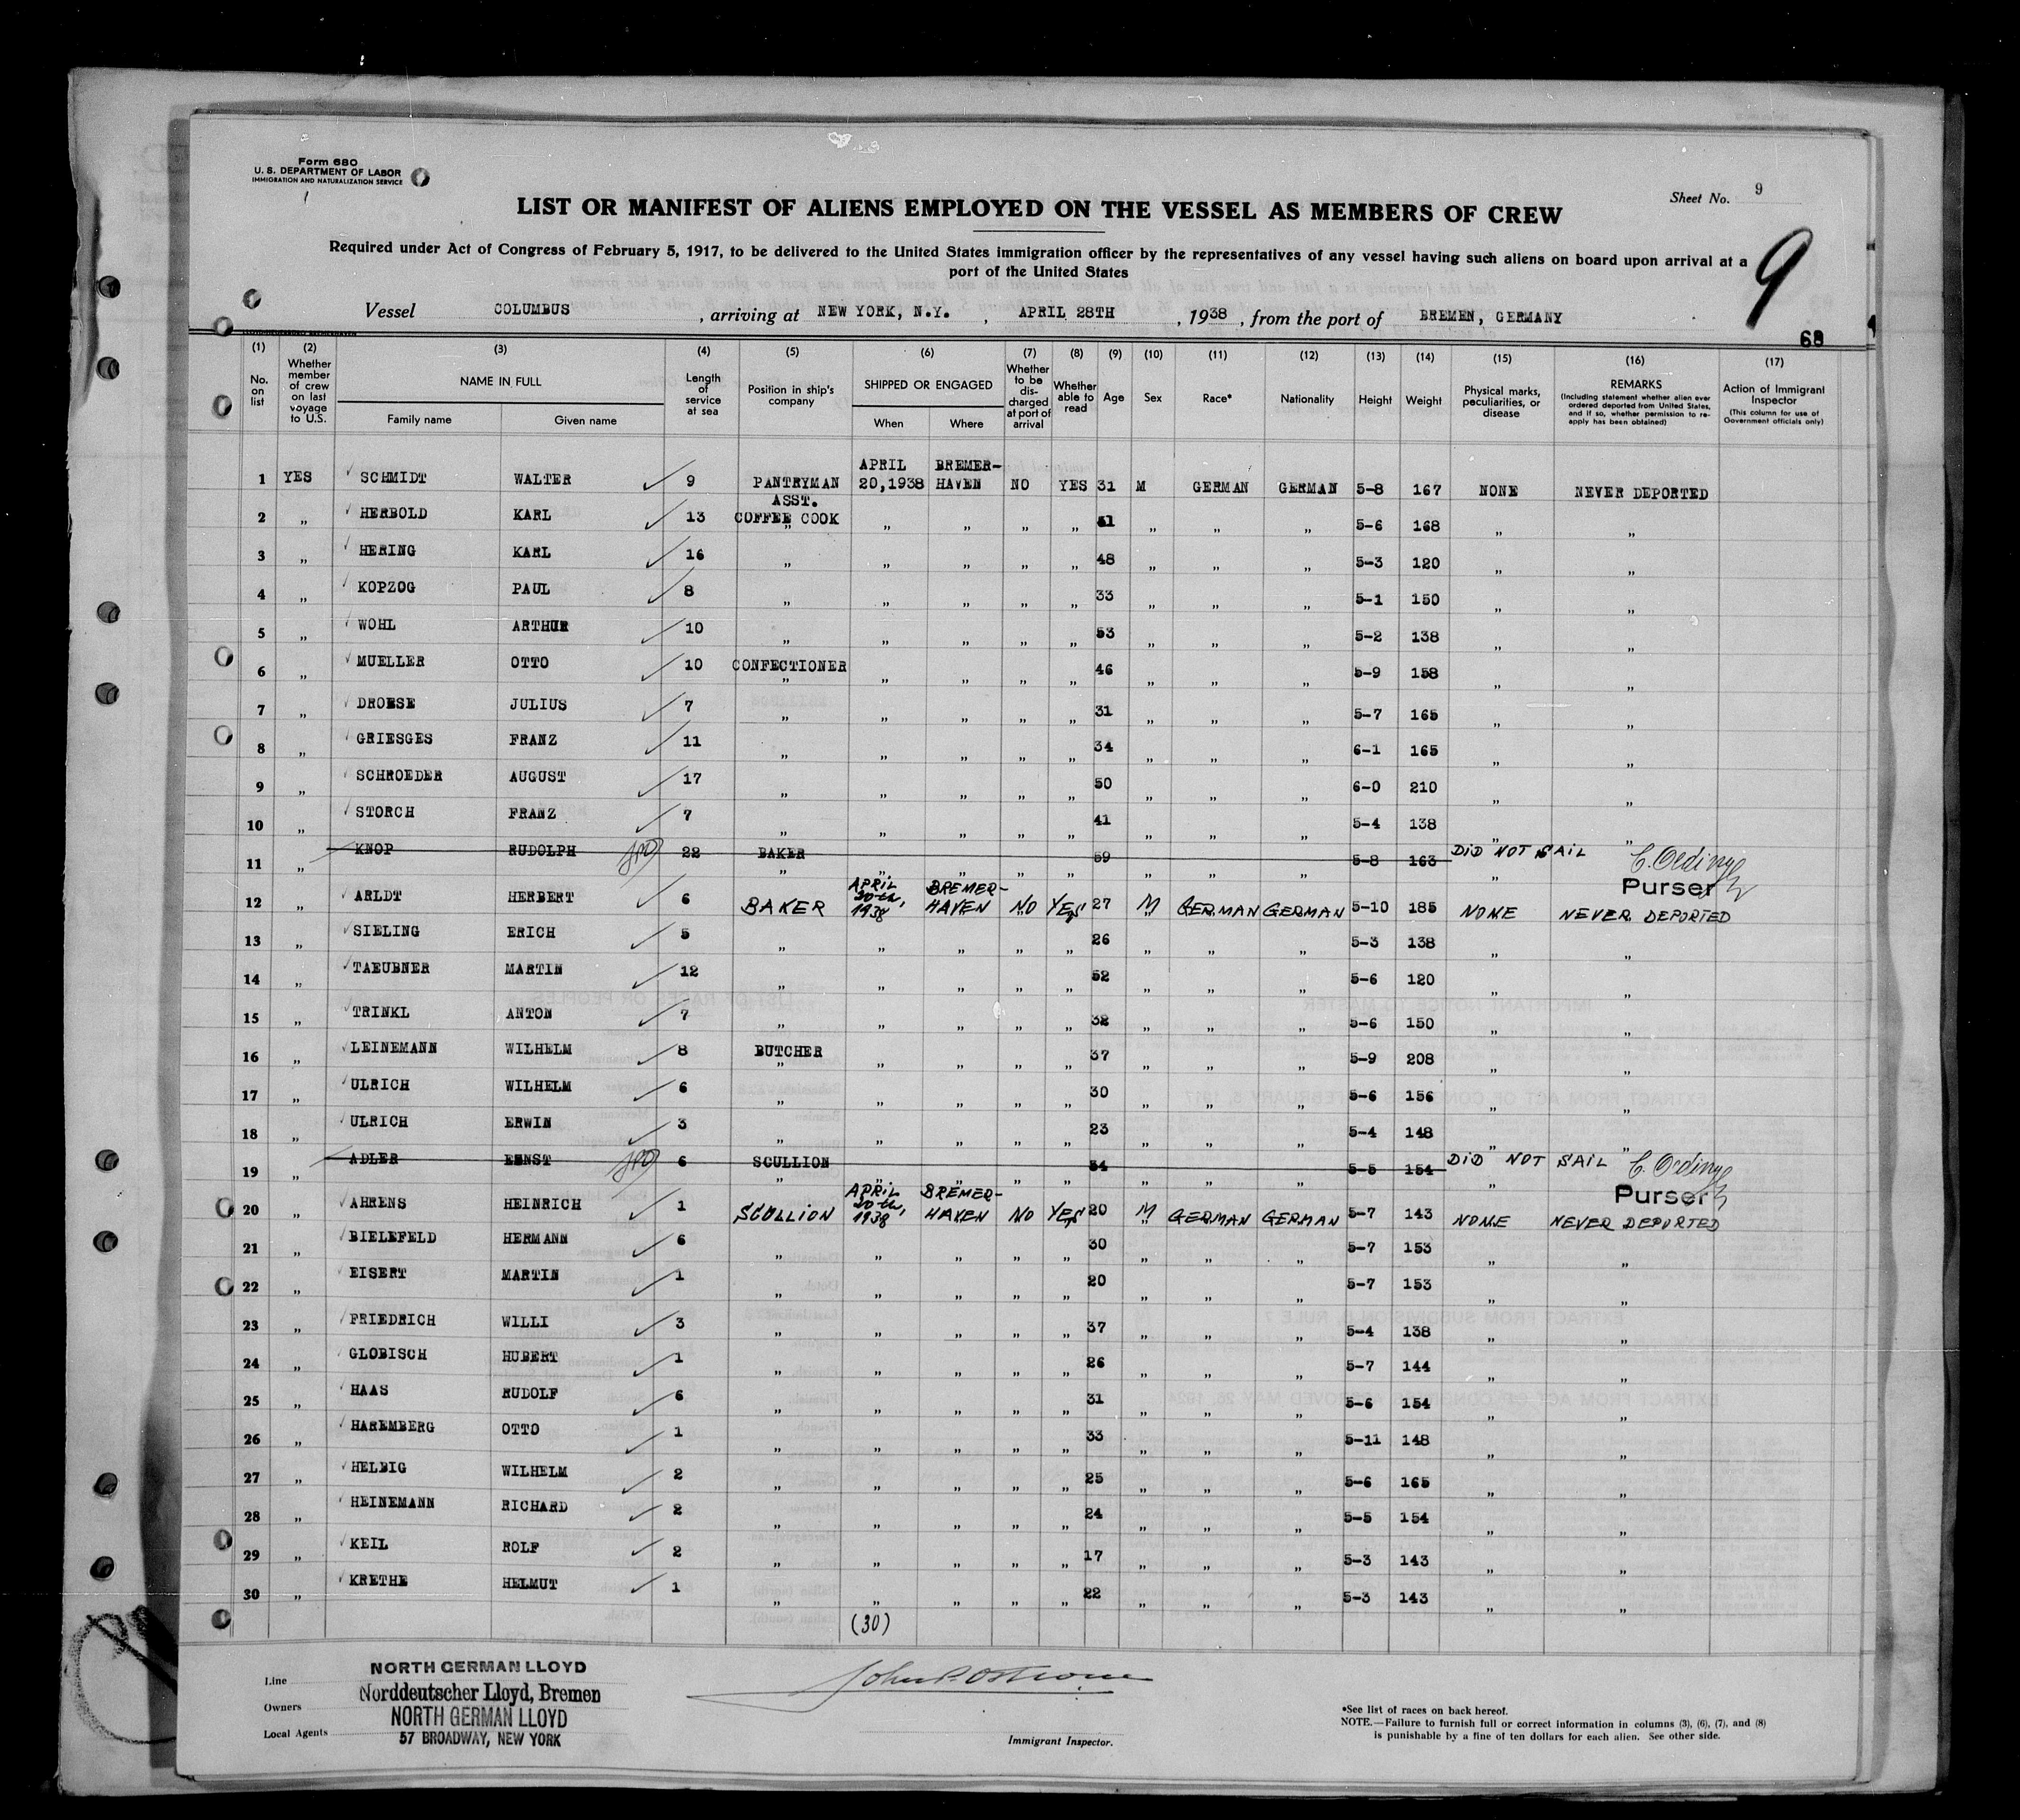 Form 680
U. S. DEPARTMENT OF LABOR
IMMIGRATION AND NATURALIZATION SERVICE
Sheet No. 9
LIST OR MANIFEST OF ALIENS EMPLOYED ON THE VESSEL AS MEMBERS OF CREW
Required under Act of Congress of February 5, 1917, to be delivered to the United States immigration officer by the representatives of any vessel having such aliens on board upon arrival at a
port of the United States
9
Vessel COLUMBUS, arriving at NEW YORK, N.Y., APRIL 28TH, 1938, from the port of BREMEN, GERMANY
68
(1) (2) (3) (4) (5) (6) (7) (8) (9) (10) (11) (12) (13) (14) (15) (16) (17)
No. on list Whether member of crew on last voyage to U.S. NAME IN FULL Family name Given name Length of service at sea Position in ship's company SHIPPED OR ENGAGED When Where Whether to be discharged at port of arrival Whether able to read Age Sex Race* Nationality Height Weight Physical marks, peculiarities, or disease REMARKS (Including statement whether alien ever ordered deported from United States, and if so, whether permission to re-apply has been obtained) Action of Immigrant Inspector (This column for use of Government officials only)
1 YES SCHMIDT WALTER 9 PANTRYMAN APRIL 20,1938 BREMER-HAVEN NO YES 31 M GERMAN GERMAN 5-8 167 NONE NEVER DEPORTED
2 „ HERBOLD KARL 13 ASST. COFFEE COOK „ „ „ „ „ „ „ 5-6 168 „ „
3 „ HERING KARL 16 „ „ „ „ „ 48 „ „ „ 5-3 120 „ „
4 „ KOPZOG PAUL 8 „ „ „ „ „ 33 „ „ „ 5-1 150 „ „
5 „ WOHL ARTHUR 10 „ „ „ „ „ 53 „ „ „ 5-2 138 „ „
6 „ MUELLER OTTO 10 CONFECTIONER „ „ „ „ 46 „ „ „ 5-9 158 „ „
7 „ DROESE JULIUS 7 „ „ „ „ „ 31 „ „ „ 5-7 165 „ „
8 „ GRIESGES FRANZ 11 „ „ „ „ „ 34 „ „ „ 6-1 165 „ „
9 „ SCHROEDER AUGUST 17 „ „ „ „ „ 50 „ „ „ 6-0 210 „ „
10 „ STORCH FRANZ 7 „ „ „ „ „ 41 „ „ „ 5-4 138 „ „
11 „ KNOP RUDOLPH 22 BAKER „ „ „ „ 59 „ „ „ 5-8 163 DID NOT SAIL
Purser
12 „ ARLDT HERBERT 6 BAKER APRIL 20th, 1938 BREMER-HAVEN NO YES 27 M GERMAN GERMAN 5-10 185 NONE NEVER DEPORTED
13 „ SIELING ERICH 5 „ „ „ „ „ 26 „ „ „ 5-3 138 „ „
14 „ TAEUBNER MARTIN 12 „ „ „ „ „ 52 „ „ „ 5-6 120 „ „
15 „ TRINKL ANTON 7 „ „ „ „ „ 32 „ „ „ 5-6 150 „ „
16 „ LEINEMANN WILHELM 8 BUTCHER „ „ „ „ 37 „ „ „ 5-9 208 „ „
17 „ ULRICH WILHELM 6 „ „ „ „ „ 30 „ „ „ 5-6 156 „ „
18 „ ULRICH ERWIN 3 „ „ „ „ „ 23 „ „ „ 5-4 148 „ „
19 „ ADLER ERNST 6 SCULLION „ „ „ „ 34 „ „ „ 5-5 154 DID NOT SAIL
Purser
20 „ AHRENS HEINRICH 1 SCULLION APRIL 20th, 1938 BREMER-HAVEN NO YES 20 M GERMAN GERMAN 5-7 143 NONE NEVER DEPORTED
21 „ BIELEFELD HERMANN 6 „ „ „ „ „ 30 „ „ „ 5-7 153 „ „
22 „ EISERT MARTIN 1 „ „ „ „ „ 20 „ „ „ 5-7 153 „ „
23 „ FRIEDRICH WILLI 3 „ „ „ „ „ 37 „ „ „ 5-4 138 „ „
24 „ GLOBISCH HUBERT 1 „ „ „ „ „ 26 „ „ „ 5-7 144 „ „
25 „ HAAS RUDOLF 6 „ „ „ „ „ 31 „ „ „ 5-6 154 „ „
26 „ HAREMBERG OTTO 1 „ „ „ „ „ 33 „ „ „ 5-11 148 „ „
27 „ HELBIG WILHELM 2 „ „ „ „ „ 25 „ „ „ 5-6 165 „ „
28 „ HEINEMANN RICHARD 2 „ „ „ „ „ 24 „ „ „ 5-5 154 „ „
29 „ KEIL ROLF 2 „ „ „ „ „ 17 „ „ „ 5-3 143 „ „
30 „ KRETHE HELMUT 1 „ „ „ „ „ 22 „ „ „ 5-3 143 „ „
(30)
Line NORTH GERMAN LLOYD
Owners Norddeutscher Lloyd, Bremen
Local Agents NORTH GERMAN LLOYD
57 BROADWAY, NEW YORK
Immigrant Inspector.
*See list of races on back hereof.
NOTE.—Failure to furnish full or correct information in columns (3), (6), (7), and (8)
is punishable by a fine of ten dollars for each alien. See other side.